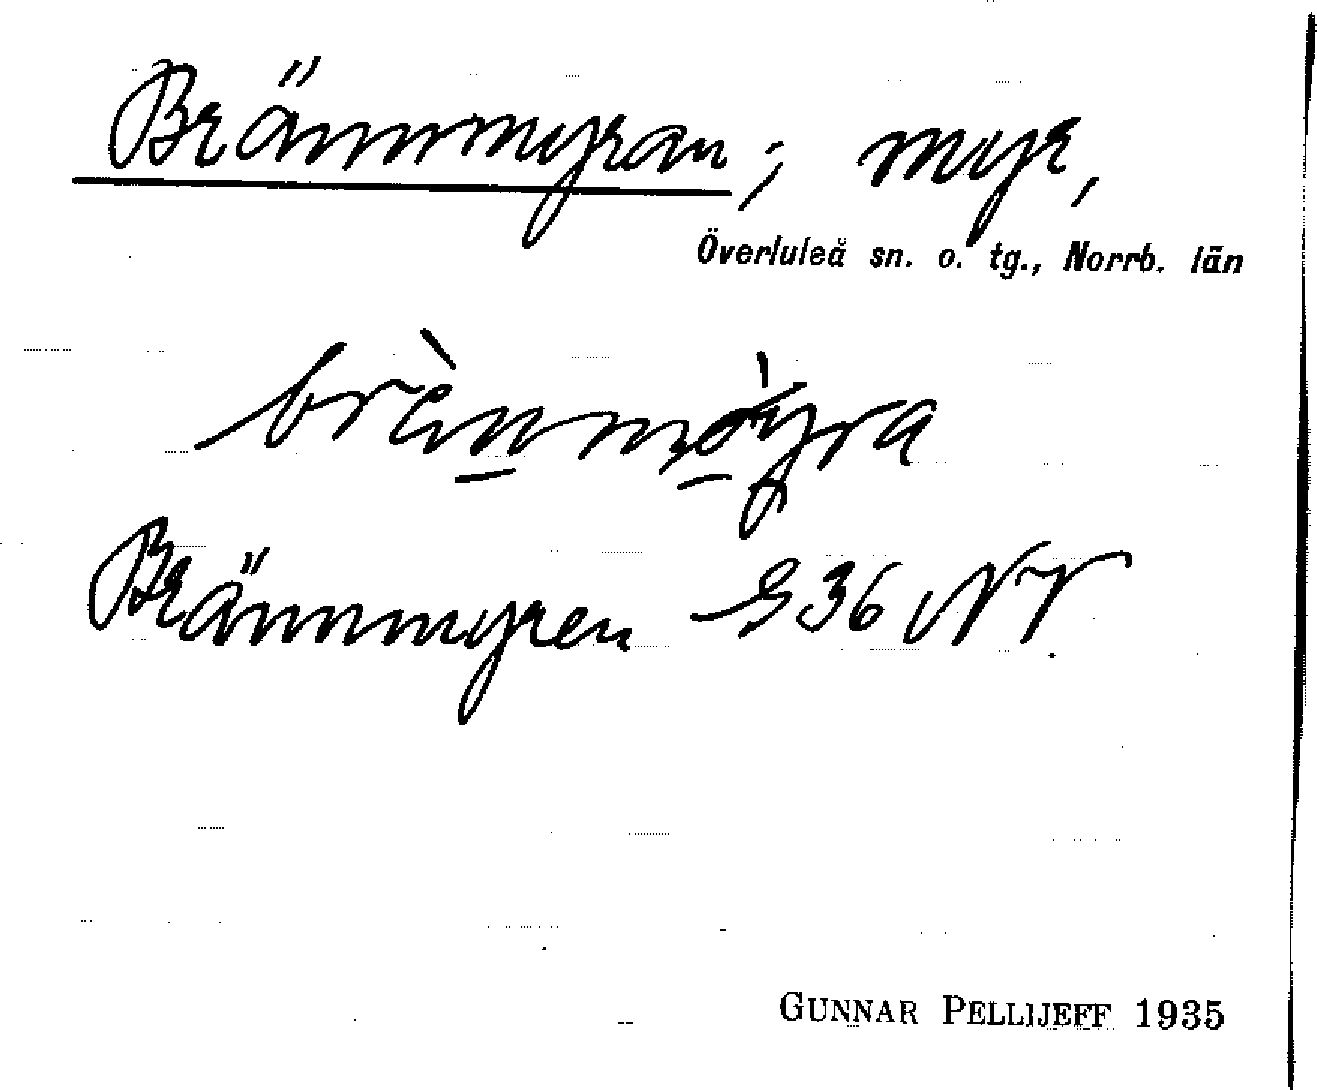 Brännmyran; myr,
Överluleå sn. o. tg., Norrb. län
brènmòyra
Brännmyren S 36 NV
GUNNAR PELLIJEFF 1935